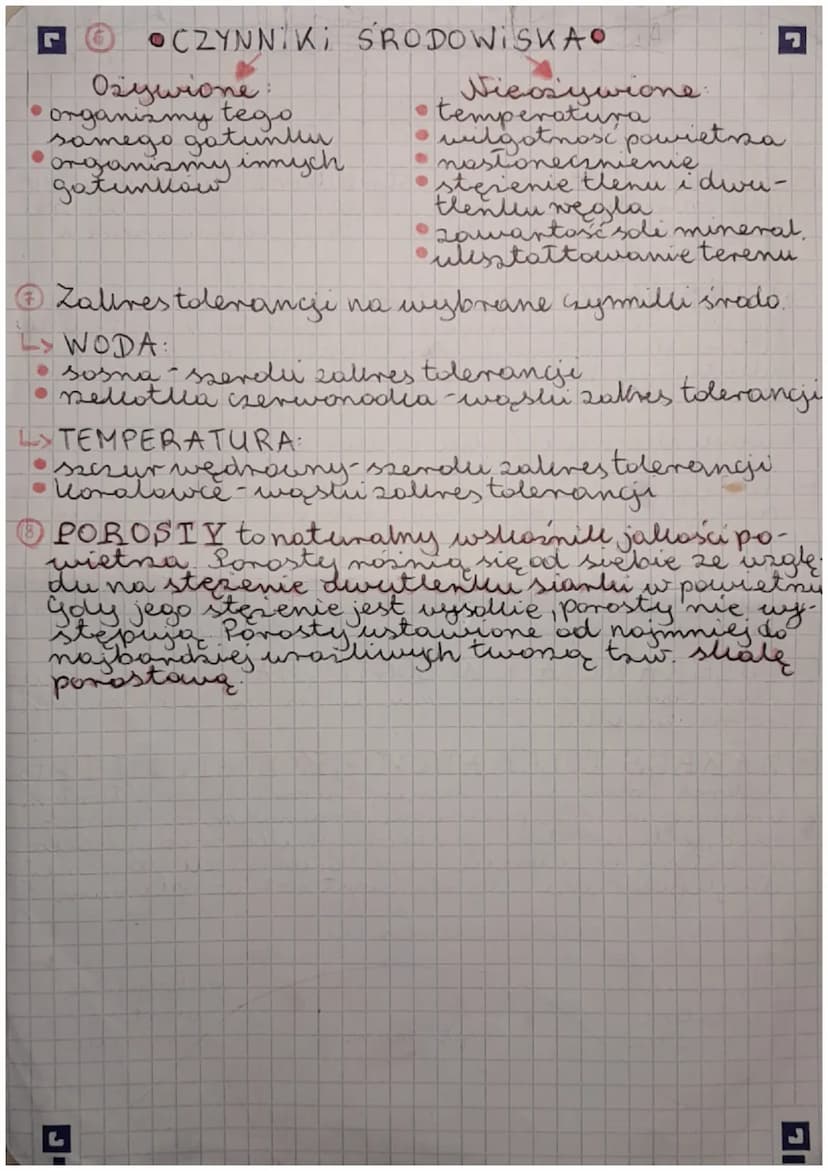 6 • CZYNNIKI ŚRODOWISKA •
Ożywione:
• organizmy tego
samego gatunku
• organizmy innych
gatunków
Nieożywione:
• temperatura
• wilgotność powietrza
• nasłonecznienie
• stężenie tlenu i dwu-
tlenku węgla
• zawartość soli mineral.
• ukształtowanie terenu
7 Zakres tolerancji na wybrane czynniki środo.
↳ WODA:
• sosna - szeroki zakres tolerancji
• rzekotka czerwonooka - wąski zakres tolerancji
↳ TEMPERATURA:
• szczur wędrowny - szeroki zakres tolerancji
• koralowce - wąski zakres tolerancji
8 POROSTY to naturalny wskaźnik jakości po-
wietrza. Porosty różnią się od siebie ze wzglę-
du na stężenie dwutlenku siarki w powietrzu
Gdy jego stężenie jest wysokie, porosty nie wy-
stępują. Porosty ustawione od najmniej do
najbardziej wrażliwych tworzą tzw. skalę
porostową.